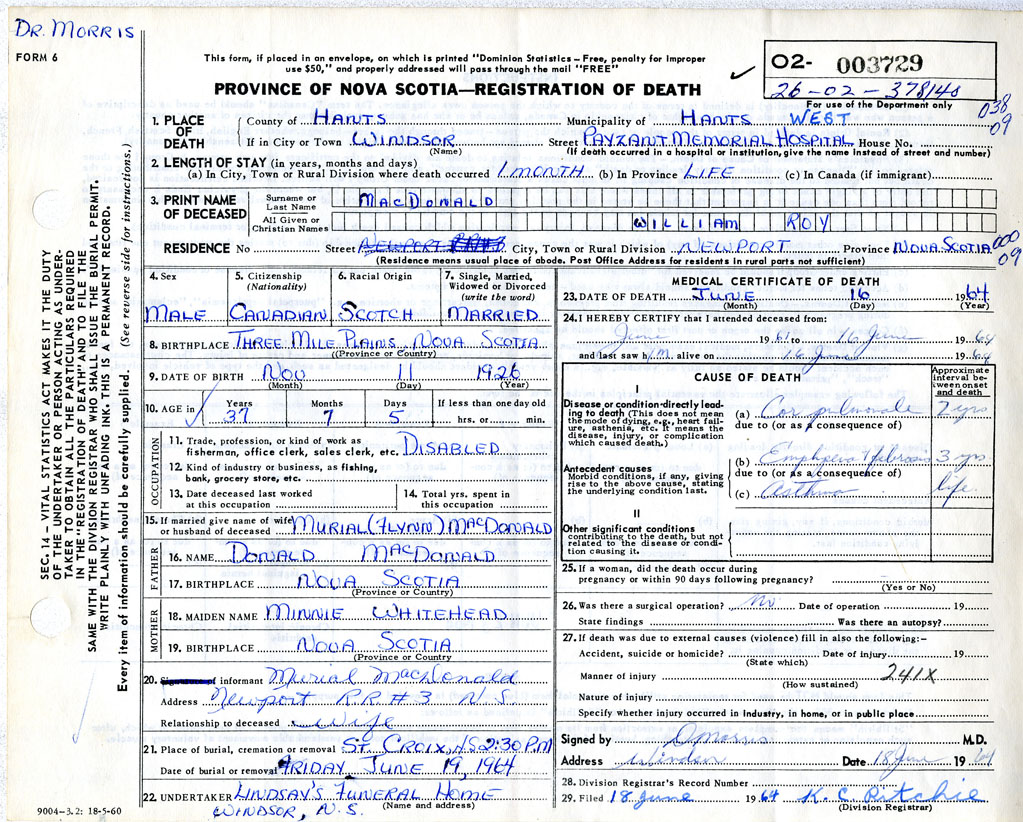 DR. MORRIS
FORM 6
This form, if placed in an envelope, on which is printed "Dominion Statistics – Free, penalty for improper
use $50," and properly addressed will pass through the mail "FREE"
PROVINCE OF NOVA SCOTIA—REGISTRATION OF DEATH
02- 003729
26-02-378140
For use of the Department only
038
09
1. PLACE OF DEATH
County of HANTS Municipality of HANTS WEST
If in City or Town WINDSOR Street PAYZANT MEMORIAL HOSPITAL House No.
(Name) (If death occurred in a hospital or institution, give the name instead of street and number)
2. LENGTH OF STAY (in years, months and days)
(a) In City, Town or Rural Division where death occurred 1 MONTH (b) In Province LIFE (c) In Canada (if immigrant)
3. PRINT NAME OF DECEASED
Surname or Last Name MACDONALD
All Given or Christian Names WILLIAM ROY
RESIDENCE No Street NEWPORT RR#3 City, Town or Rural Division NEWPORT Province NOVA SCOTIA 000
09
(Residence means usual place of abode. Post Office Address for residents in rural parts not sufficient)
4. Sex
MALE
5. Citizenship (Nationality)
CANADIAN
6. Racial Origin
SCOTCH
7. Single, Married, Widowed or Divorced (write the word)
MARRIED
8. BIRTHPLACE THREE MILE PLAINS NOVA SCOTIA
(Province or Country)
9. DATE OF BIRTH NOV 11 1926
(Month) (Day) (Year)
10. AGE in
Years Months Days If less than one day old
37 7 5 hrs. or min.
OCCUPATION
11. Trade, profession, or kind of work as
fisherman, office clerk, sales clerk, etc. DISABLED
12. Kind of industry or business, as fishing,
bank, grocery store, etc.
13. Date deceased last worked
at this occupation
14. Total yrs. spent in
this occupation
15. If married give name of wife
or husband of deceased MURIAL (FLYNN) MACDONALD
FATHER
16. NAME DONALD MACDONALD
17. BIRTHPLACE NOVA SCOTIA
(Province or Country)
MOTHER
18. MAIDEN NAME MINNIE WHITEHEAD
19. BIRTHPLACE NOVA SCOTIA
(Province or Country
20. of informant Murial MacDonald
Address Newport R.R #3 N.S
Relationship to deceased Wife
21. Place of burial, cremation or removal ST. CROIX, NS 2:30 PM
Date of burial or removal FRIDAY JUNE 19, 1964
22. UNDERTAKER LINDSAY'S FUNERAL HOME
(Name and address)
WINDSOR, N.S.
9004-3.2: 18-5-60
MEDICAL CERTIFICATE OF DEATH
23. DATE OF DEATH JUNE 16 1964
(Month) (Day) (Year)
24. I HEREBY CERTIFY that I attended deceased from:
June 1961 to 16 June 1964
and last saw him alive on 16 June 1964
CAUSE OF DEATH
Approximate interval between onset and death
I
Disease or condition directly leading to death (This does not mean the mode of dying, e.g., heart failure, asthenia, etc. It means the disease, injury, or complication which caused death.)
(a) Cor pulmonale 2 yrs
due to (or as a consequence of)
Antecedent causes
Morbid conditions, if any, giving rise to the above cause, stating the underlying condition last.
(b) 3 yrs
due to (or as a consequence of)
(c) Asthma life
II
Other significant conditions
contributing to the death, but not related to the disease or condition causing it.
25. If a woman, did the death occur during
pregnancy or within 90 days following pregnancy?
(Yes or No)
26. Was there a surgical operation? No Date of operation 19
State findings Was there an autopsy?
27. If death was due to external causes (violence) fill in also the following:–
Accident, suicide or homicide? Date of injury 19
(State which)
Manner of injury 241X
(How sustained)
Nature of injury
Specify whether injury occurred in industry, in home, or in public place
Signed by D Morris M.D.
Address Windsor Date 18 June 1964
28. Division Registrar's Record Number
29. Filed 18 June 1964 K. C. Ritchie
(Division Registrar)
SEC. 14 – VITAL STATISTICS ACT MAKES IT THE DUTY
OF THE UNDERTAKER OR PERSON ACTING AS UNDER-
TAKER TO OBTAIN ALL THE PARTICULARS REQUIRED
IN THE "REGISTRATION OF DEATH" AND TO FILE THE
SAME WITH THE DIVISION REGISTRAR WHO SHALL ISSUE THE BURIAL PERMIT.
WRITE PLAINLY WITH UNFADING INK. THIS IS A PERMANENT RECORD.
Every item of information should be carefully supplied. (See reverse side for instructions.)